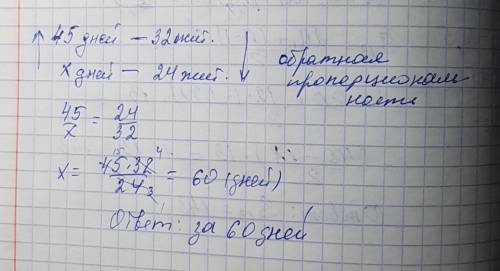 45 дней — 32 жит.
x дней — 24 жит.
обратная
пропорционал
ность
45/x = 24/32
x = 45·32/24 = 60 (дней)
15 4
3
1
Ответ: за 60 дней